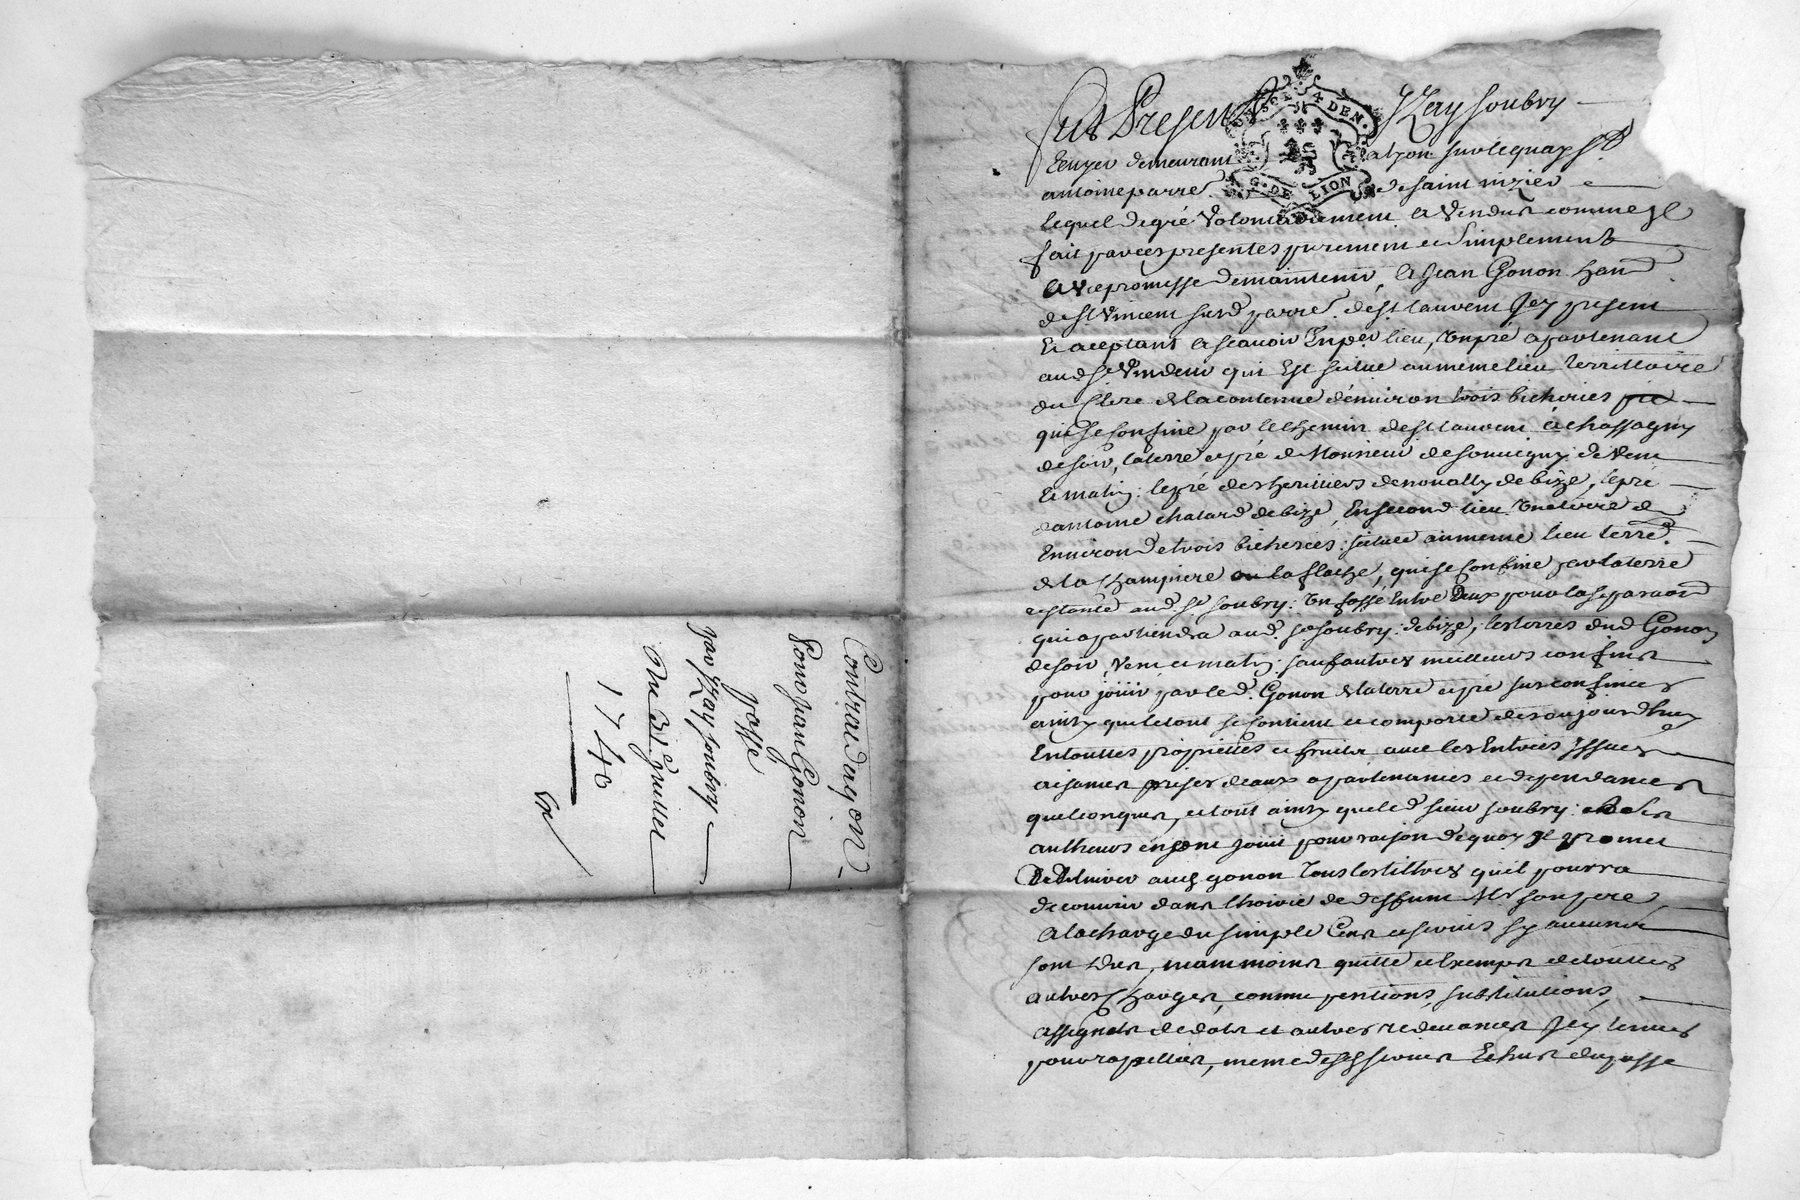 Contrat daq.on
Pour jean Gonon
passé
par Yzay Soubry
Du 31e juillet
1740
Fut Present Yzay Soubry
Ecuyer demeurant a Lyon sur le quay St
antoine parre. de saint nizier
lequel de gré volontairement a Vendu comme Jl
fait par ces presentes purement et simplement
avec promesse de maintenir, a Jean Gonon hand
de St Vincent sur d parre. de St Laurent Jcy present
Et aceptant a scavoir En per lieu, Un pré apartenant
aud Sr Vendeur qui Est scitue au meme lieu territtoire
du de la contenue d'environ trois bicheries
qui se Confine par le Chemin de St Laurent a chassagny
de soir, la terre et pré de Monsieur de de Vent
Et matin: le pré des heritiers de de bize, le pré
d'antoine chatard de bize, En second lieu Une terre d
Environ de trois bicheries: scituée au meme lieu terre.
de la Champiere ou la flache, qui se Confine par la terre
restante aud. Sr Soubry: Un fossé Entre Deux pour la separaon
qui apartiendra aud. Sr Soubry: de bize, les terres dud Gonon
de soir, Vent et matin: sauf autres meilleurs confins
pour joüir par led. Gonon de la terre et pré sus confinées
ainsy que le tout se Contient et comporte des aujourdhuy
En touttes proprietés et fruits avec les Entrées Jssues
aisances prises deaux apartenances et dependances
quelconques, et tout ainsy que led sieur Soubry: et
autheurs en ont joüit pour raison de quoy Jl promet
De Delivrer aud gonon Tous les tiltres qu'il pourra
decouvrir dans lhoirie de deffunt Mr son pere
A la charge du simple Cens et servis sy aucuns
sont dus, neammoins quitte et Exempt de touttes
autres Charges, comme pentions, substitutions,
assignats de dots et autres redevances Jcy tenues
pour rapellées, meme desd servis Echus du passé